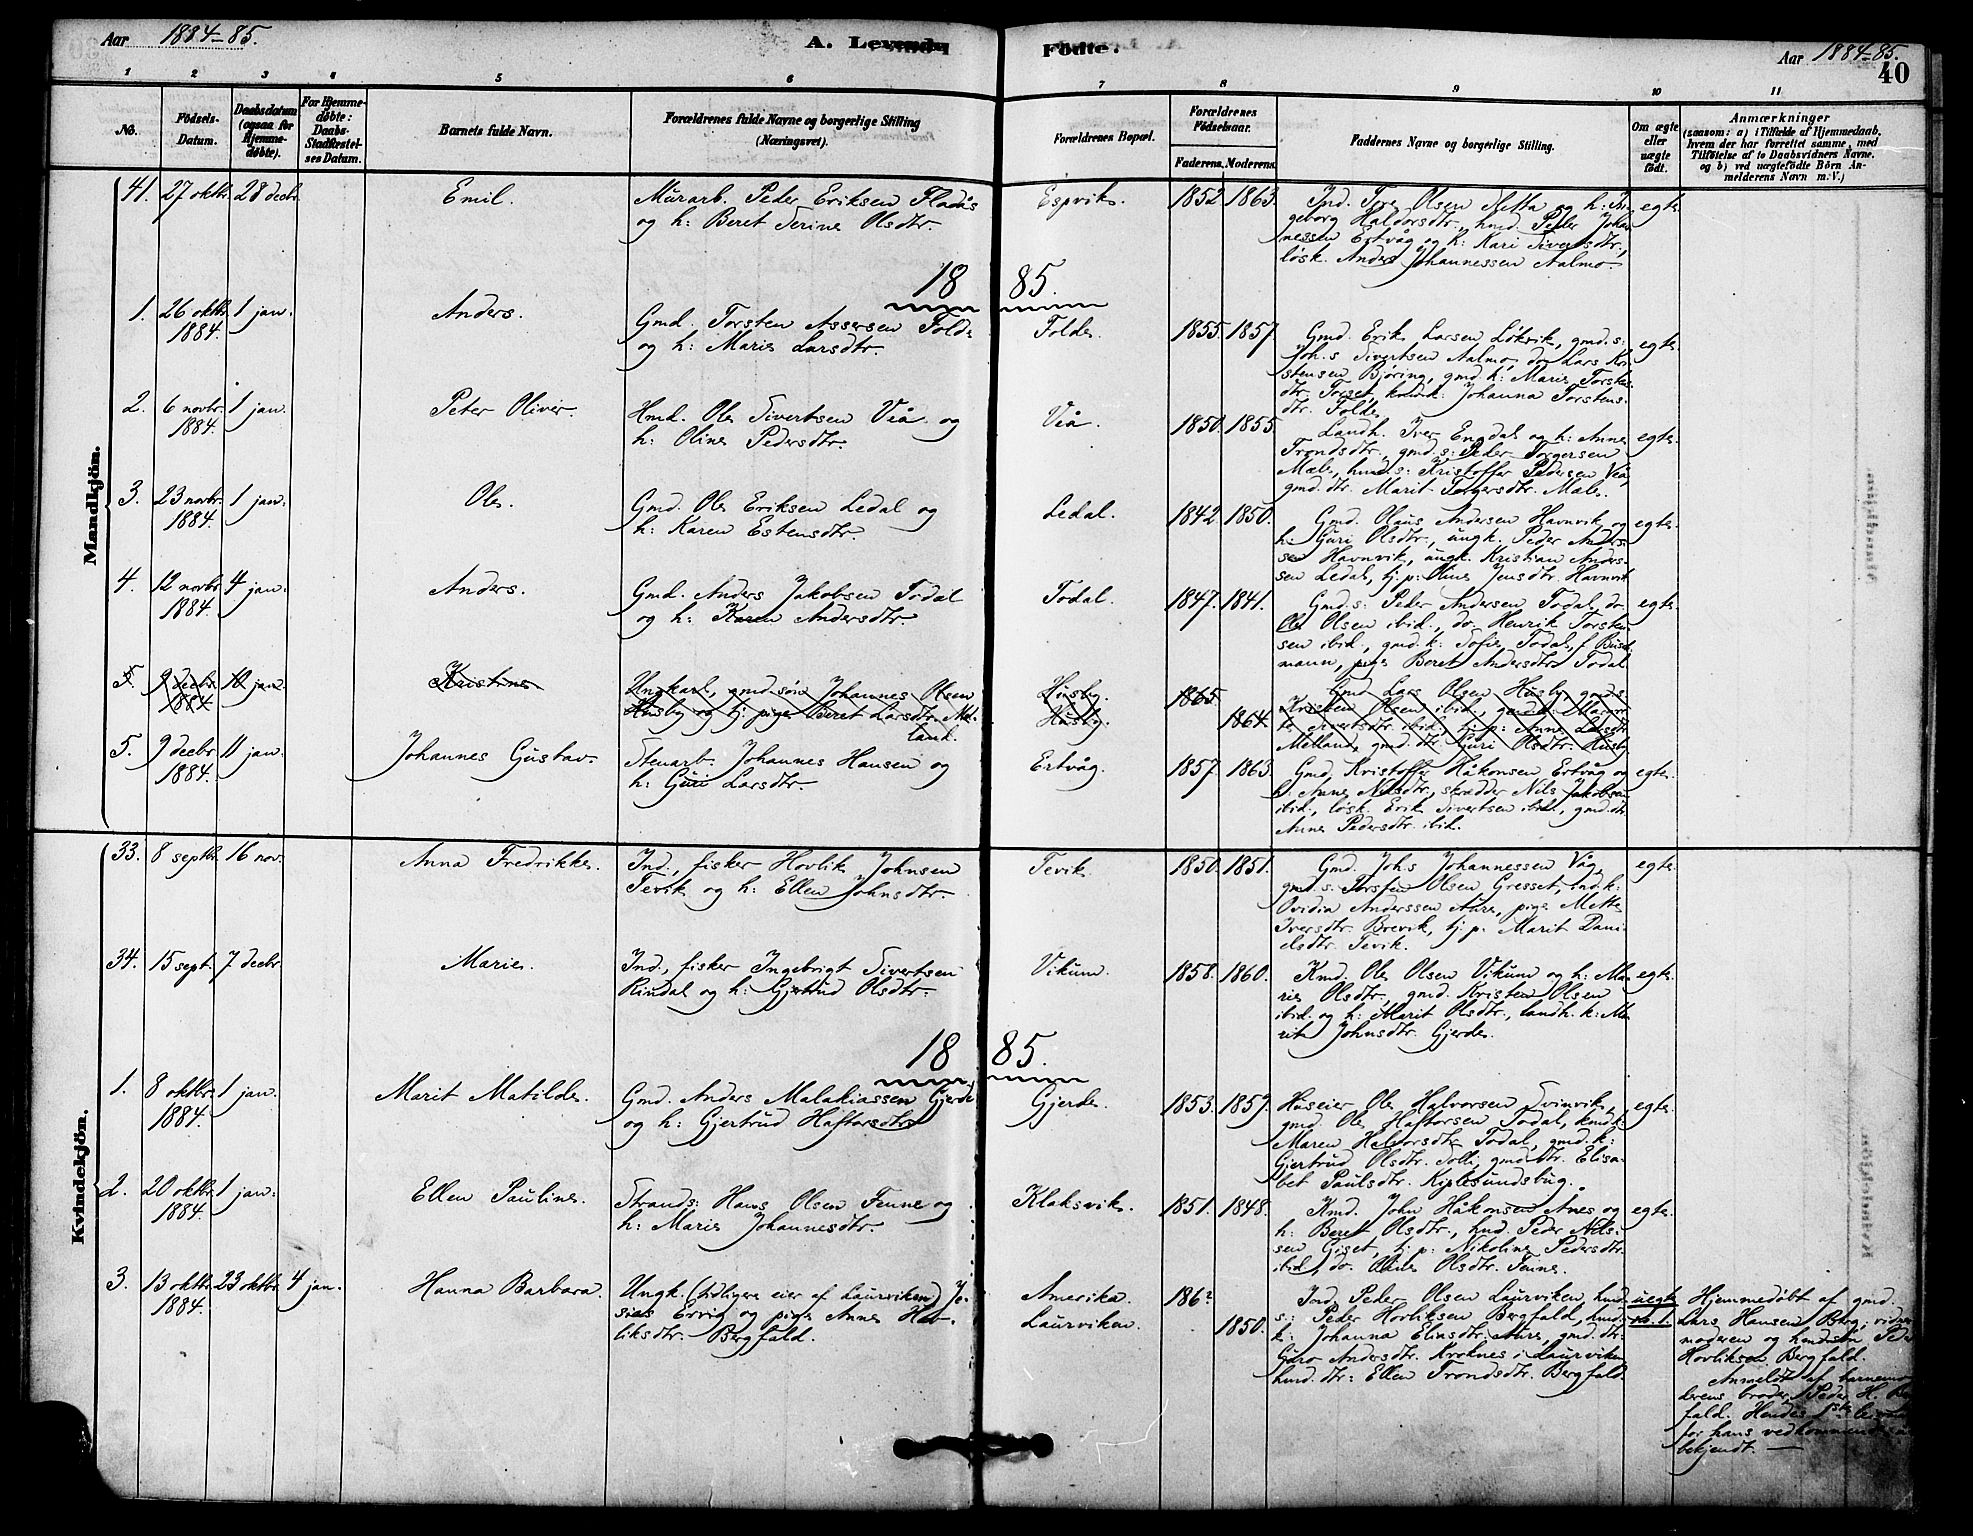 Aar 1884-85.
A. Levende
Födte.
Aar 1884-85.
40
1 2 3 4 5 6 7 8 9 10 11
No.
Födsels-
Datum.
Daabsdatum
(ogsaa for
Hjemme-
döbte).
For Hjemme-
döbte:
Daabs-
Stadfæstel-
ses Datum.
Barnets fulde Navn.
Forældrenes fulde Navne og borgerlige Stilling
(Næringsvei).
Forældrenes Bopæl.
Forældrenes
Födselsaar.
Faderens. Moderens.
Faddernes Navne og borgerlige Stilling.
Om ægte
eller
uægte
födt.
Anmærkninger
(saasom: a) i Tilfælde af Hjemmedaab,
hvem der har forrettet samme, med
Tilföielse af to Daabsvidners Navne,
og b) ved uægtefödte Börn An-
melderens Navn m. V.)
Mandkjön.
41. 27 oktbr. 28 decbr. Emil.
Murarb. Peder Eriksen Fladås
og h: Beret Serine Olsdtr.
Espvik. 1852. 1863.
Ind. Iver Olsen Sletta og h: In-
geborg Haldorsdtr., hmd. Peder Johan-
nessen Ertvåg og h: Kari Sivertsdtr.,
løsk. Anders Johannessen Aalmo.
egte.
1885.
1. 26 oktbr. 1 jan.
1884.
Anders.
Gmd. Torsten Assersen Folde
og h: Marie Larsdtr.
Folde. 1855. 1857.
Gmd. Erik Larsen Løkvik, gmd.s:
Joh.s Sivertsen Aalmo, do Lars Kri-
stensen Bjøring, gmd. k: Marie Torstens-
dtr. Torset, Johanna Torstens-
dtr. Folde.
egte.
2. 6 novbr. 1 jan.
1884.
Peter Oliver.
Hmd. Ole Sivertsen Viå og
h: Oline Pedersdtr.
Viå. 1850. 1855.
Landh. Iver Engdal og h: Anne
Trondsdtr., gmd.s: Peder Torgersen
Mæle, hmd.s: Kristoffer Pedersen Viå,
gmd. dtr. Marit Torgersdtr. Mæle.
egte.
3. 23 novbr. 1 jan.
1884.
Ole.
Gmd. Ole Eriksen Ledal og
h: Karen Estensdtr.
Ledal. 1842. 1850.
Gmd. Olaus Andersen Havnvik og
h: Guri Olsdtr., ungk. Peder Anders-
sen Havnvik, ungk. Kristian Anders-
sen Ledal, tj. p: Oline Jensdtr. Havnvik
egte.
4. 12 novbr. 4 jan.
1884.
Anders.
Gmd. Anders Jakobsen Todal
og h: Karen Andersdtr.
Todal. 1847. 1841.
Gmd.s: Peder Andersen Todal, do
Ole Olsen ibid., do. Henrik Torsten-
sen ibid., gmd. k: Sofie Todal, f. Bus-
mann, pige Beret Andersdtr. Todal
egte.
5. 9 decbr. 10 jan.
1884
Kristine
Ungkarl, gmd. søn Johannes Olsen
Husby og tj. pige Beret Larsdtr. Mel-
land.
Husby. 1865.
Husby. 1864.
Gmd Lars Olsen Husby, gmd.s:
Kristen Olsen ibid.,
Sivertsdtr. ibid., tj. p: Anne Larsdtr.
Melland, gmd. dtr. Guri Olsdtr. Husby
5. 9 decbr. 11 jan.
1884.
Johannes Gustav.
Stenarb. Johannes Hansen og
h: Guri Larsdtr.
Ertvåg. 1857. 1863.
Gmd. Kristoffer Håkonsen Ertvåg og
h: Anne Nilsdtr., skrædder Nils Jakobsen
ibid., løsk. Erik Sivertsen ibid., gmd. dtr.
Anne Pedersdtr. ibid.
egte.
Kvindekjön.
33. 8 septbr. 16 nov.
Anna Fredrikke.
Ind., fisker Hovlik Johnsen
Tevik og h: Ellen Johnsdtr.
Tevik. 1850. 1851.
Gmd. Joh.s Johannessen Våg,
gmd.s. Torsten Olsen Gresset, ind. k:
Ovidia Anderssen Aure, pige Mette
Iversdtr. Brevik, tj. p: Marit Dani-
elsdtr. Tevik.
egte.
34. 15 sept. 7 decbr.
Marie.
Ind., fisker Ingebrigt Sivertsen
Rindal og h: Gjertrud Olsdtr.
Vikum. 1858. 1860.
Kmd. Ole Olsen Vikum og h: Ma-
rie Olsdtr., gmd. Kristen Olsen
ibid. og h: Marit Olsdtr., landh. k: Ma-
rit Johnsdtr. Gjerde.
egte.
1885.
1. 8 oktbr. 1 jan.
1884.
Marit Matilde.
Gmd. Anders Malakiassen Gjerde
og h: Gjertrud Haftorsdtr.
Gjerde. 1853. 1857.
Huseier Ole Halvorsen Svinvik,
gmd. Ole Haftorsen Todal, kmd.k:
Maren Haldorsdtr. Todal, gmd. k:
Gjertrud Olsdtr. Solli, gmd. dtr. Elisa-
bet Paulsdtr. Kiplesundsbug.
egte.
2. 20 oktbr. 1 jan.
1884.
Ellen Pauline.
Strands: Hans Olsen Fenne og
h: Marie Johannesdtr.
Klaksvik. 1851. 1848.
Kmd. John Håkonsen Anes og
h: Beret Olsdtr., hmd. Peder Nils-
sen Giset, tj. p: Nikoline Pedersdtr.
ibid., do. Oline Olsdtr. Fenne.
egte.
3. 13 oktbr. 23 oktbr. 4 jan.
1884.
Hanna Barbara.
Ungk. (tidligere eier af Laurviken) Jo-
sias Ervig og pige Anne Hov-
liksdtr. Bergfald.
Amerika. 186?
Laurviken. 1850.
Ind. Peder Olsen Laurviken, hmd.
s: Peder Hovliksen Bergfald, hmd.
k: Johanna Eliasdtr. Aure, gmd. dtr.
Guro Andersdtr. Kroknes i Laurviken
hmd. dtr: Ellen Trondsdtr. Bergfald
uegte
no. 1.
Hjemmedøbt af gmd.
Lars Hansen Berg; vidner
moderen og hmd.søn Peder
Hovliksen Bergfald.
Anmeldt af barnemo-
derens broder, Peder H. Berg-
fald. Hendes 1ste leierm.
for hans vedkommende
bekjendt. —